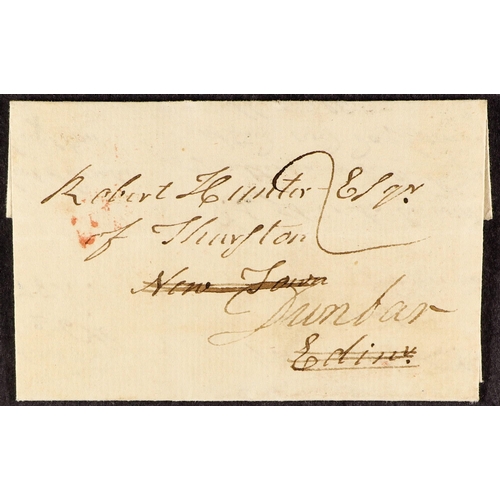 Robert Hunter Esqr.
2
of Thurston
New Town
Dunbar
Edinr.